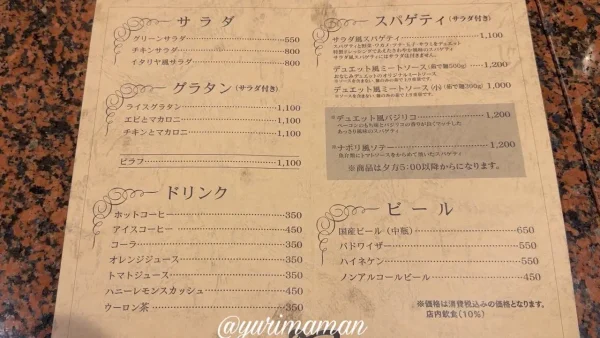 サラダ
グリーンサラダ 550
チキンサラダ 800
イタリヤ風サラダ 800
グラタン (サラダ付き)
ライスグラタン 1,100
エビとマカロニ 1,100
チキンとマカロニ 1,100
ピラフ 1,100
ドリンク
ホットコーヒー 350
アイスコーヒー 450
コーラ 350
オレンジジュース 350
トマトジュース 350
ハニーレモンスカッシュ 450
ウーロン茶 350
スパゲティ (サラダ付き)
サラダ風スパゲティ 1,100
デュエット風ミートソース (茹で麺500g) 1,200
おなじみデュエットのオリジナルミートソース
デュエット風ミートソース (小) (茹で麺300g) 1,000
※デュエット風バジリコ 1,200
ベーコンのうち味とバジリコの香りが出てマッチした
あっさり風味のスパゲティ
※ナポリ風ソテー 1,200
※商品は夕方5:00以降からになります。
ビール
国産ビール (中瓶) 650
バドワイザー 550
ハイネケン 550
ノンアルコールビール 450
※価格は消費税込みの価格となります。
店内飲食(10%)
@yurimaman